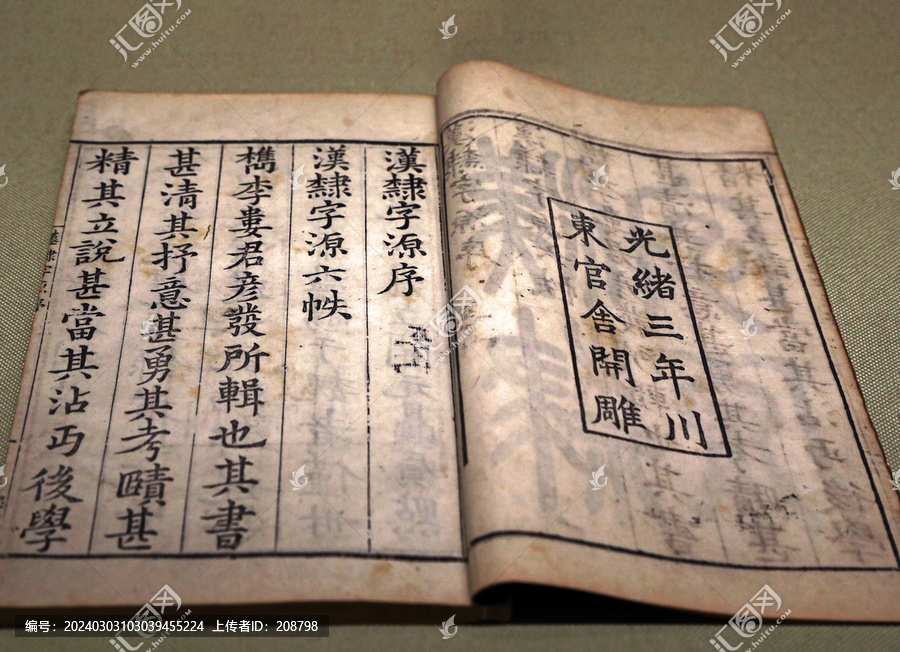 光緒三年川
東官舎開雕
漢隸字源序
漢隸字源六帙
檇李婁君彦發所輯也其書
甚清其抒意甚勇其考賾甚
精其立說甚當其沾丏後學
编号：20240303103039455224 上传者ID：208798
www.huitu.com